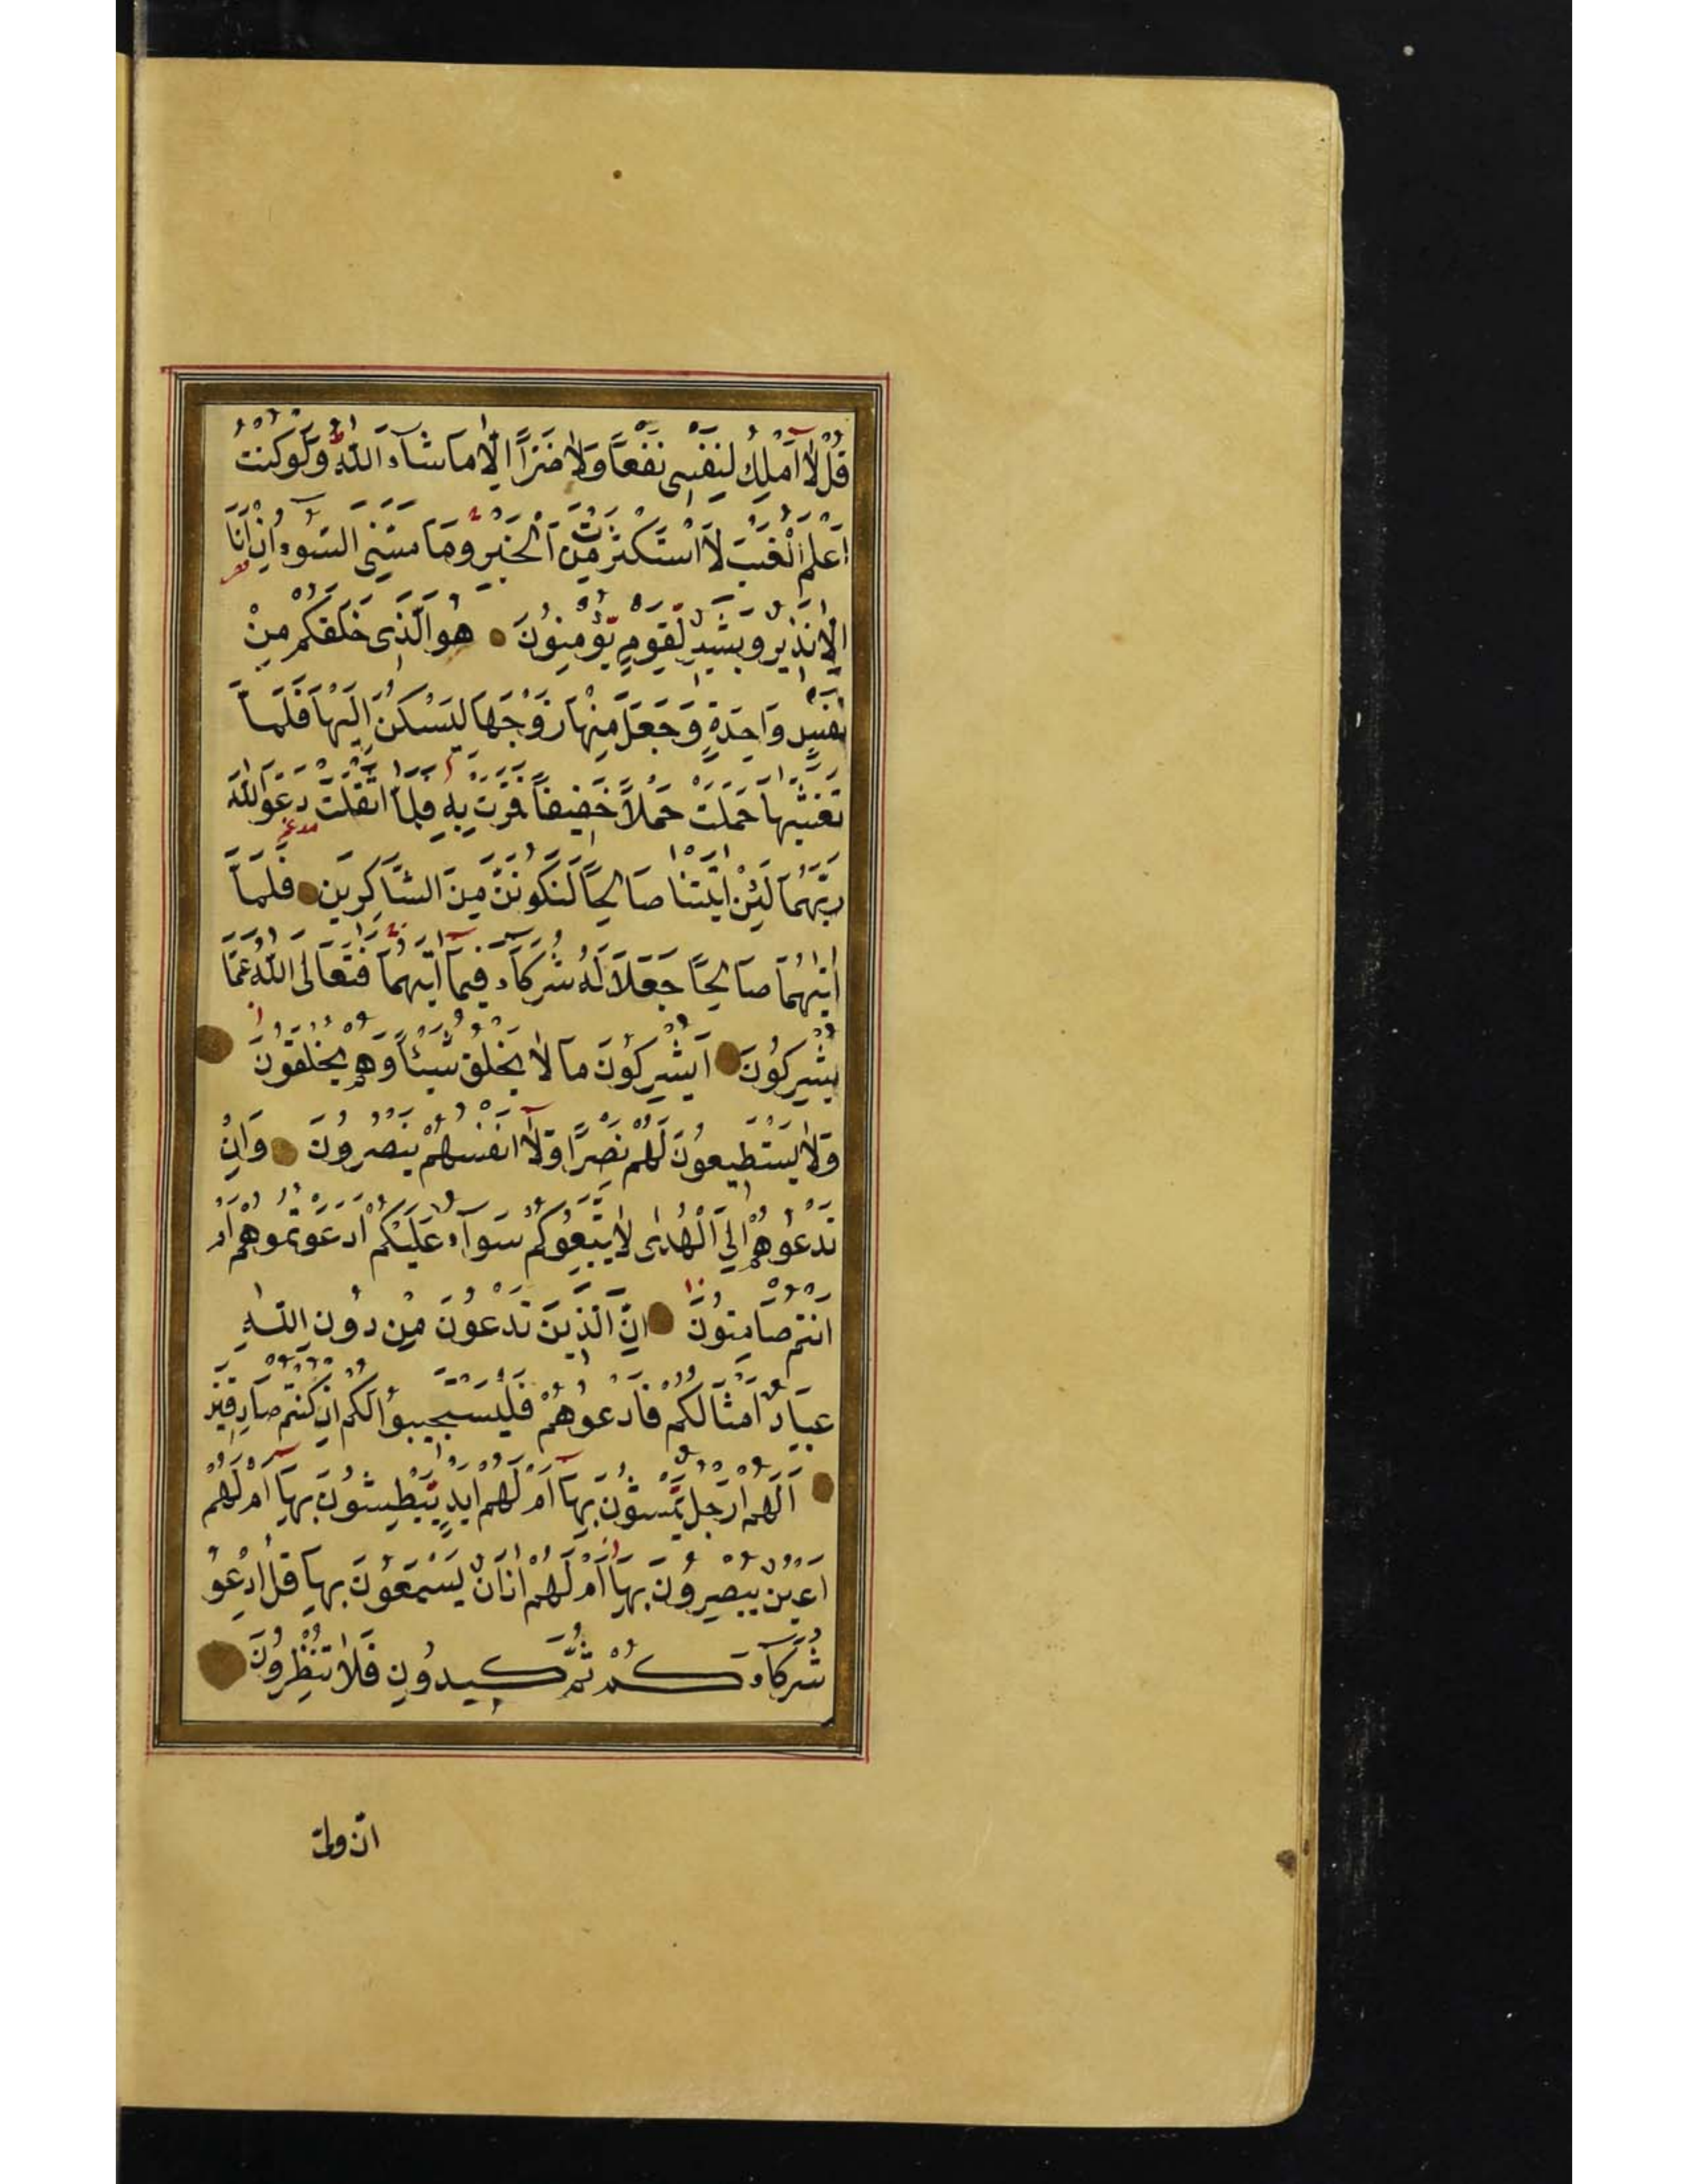 قُلْ لَا اَمْلِكُ لِنَفْسِى نَفْعًا وَلَا ضَرًّا اِلَّا مَا شَآءَ اللّٰهُ ؕ وَلَوْ كُنْتُ
اَعْلَمُ الْغَيْبَ لَا اسْتَكْثَرْتُ مِنَ الْخَيْرِ وَمَا مَسَّنِىَ السُّوٓءُ اِنْ اَنَا
اِلَّا نَذِيرٌ وَبَشِيرٌ لِقَوْمٍ يُؤْمِنُونَ هُوَ الَّذِى خَلَقَكُمْ مِنْ
نَفْسٍ وَاحِدَةٍ وَجَعَلَ مِنْهَا زَوْجَهَا لِيَسْكُنَ اِلَيْهَا فَلَمَّا
تَغَشّٰيهَا حَمَلَتْ حَمْلًا خَفِيفًا فَمَرَّتْ بِهِ فَلَمَّا اَثْقَلَتْ دَعَوَا اللّٰهَ
رَبَّهُمَا لَئِنْ اٰتَيْتَنَا صَالِحًا لَنَكُونَنَّ مِنَ الشَّاكِرِينَ فَلَمَّا
اٰتٰيهُمَا صَالِحًا جَعَلَا لَهُ شُرَكَآءَ فِيمَآ اٰتٰيهُمَا فَتَعَالَى اللّٰهُ عَمَّا
يُشْرِكُونَ اَيُشْرِكُونَ مَا لَا يَخْلُقُ شَيْئًا وَهُمْ يُخْلَقُونَ
وَلَا يَسْتَطِيعُونَ لَهُمْ نَصْرًا وَلَآ اَنْفُسَهُمْ يَنْصُرُونَ وَاِنْ
تَدْعُوهُمْ اِلَى الْهُدٰى لَا يَتَّبِعُوكُمْ سَوَآءٌ عَلَيْكُمْ اَدَعَوْتُمُوهُمْ اَمْ
اَنْتُمْ صَامِتُونَ اِنَّ الَّذِينَ تَدْعُونَ مِنْ دُونِ اللّٰهِ
عِبَادٌ اَمْثَالُكُمْ فَادْعُوهُمْ فَلْيَسْتَجِيبُوا لَكُمْ اِنْ كُنْتُمْ صَادِقِينَ
اَلَهُمْ اَرْجُلٌ يَمْشُونَ بِهَآ اَمْ لَهُمْ اَيْدٍ يَبْطِشُونَ بِهَآ اَمْ لَهُمْ
اَعْيُنٌ يُبْصِرُونَ بِهَآ اَمْ لَهُمْ اٰذَانٌ يَسْمَعُونَ بِهَا قُلِ ادْعُو
شُرَكَآءَكُمْ ثُمَّ كِيدُونِ فَلَا تُنْظِرُونَ
انّ وليّ